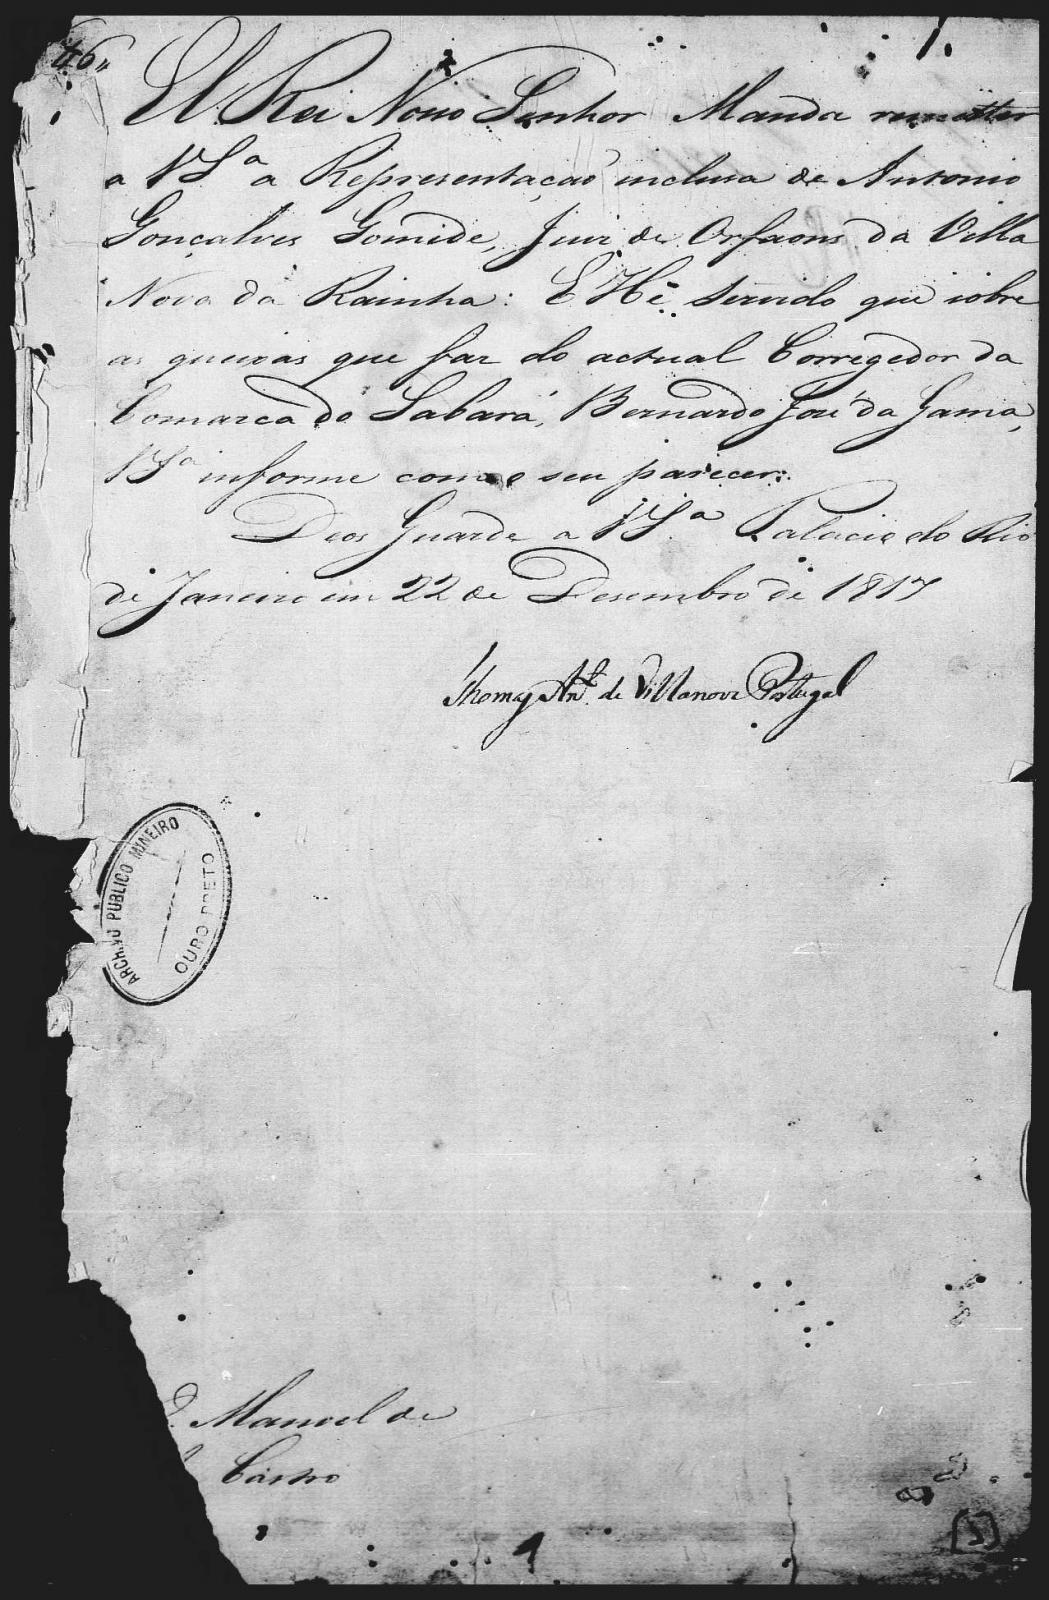 46
1.
El Rei Nosso Senhor Manda remetter
a VSª a Representação inclusa de Antonio
Gonçalves Gomide, Juiz de Orfaons da Villa
Nova da Rainha: E Hé servido que sobre
as queixas que faz do actual Corregedor da
Comarca do Sabará, Bernardo José da Gama,
VSª informe com o seu parecer:
Deos Guarde a VSª Palacio do Rio
de Janeiro em 22 de Desembro de 1817
Thomaz Antº de Villanova Portugal
ARCHIVO PUBLICO MINEIRO
OURO PRETO
D. Manoel de
Castro